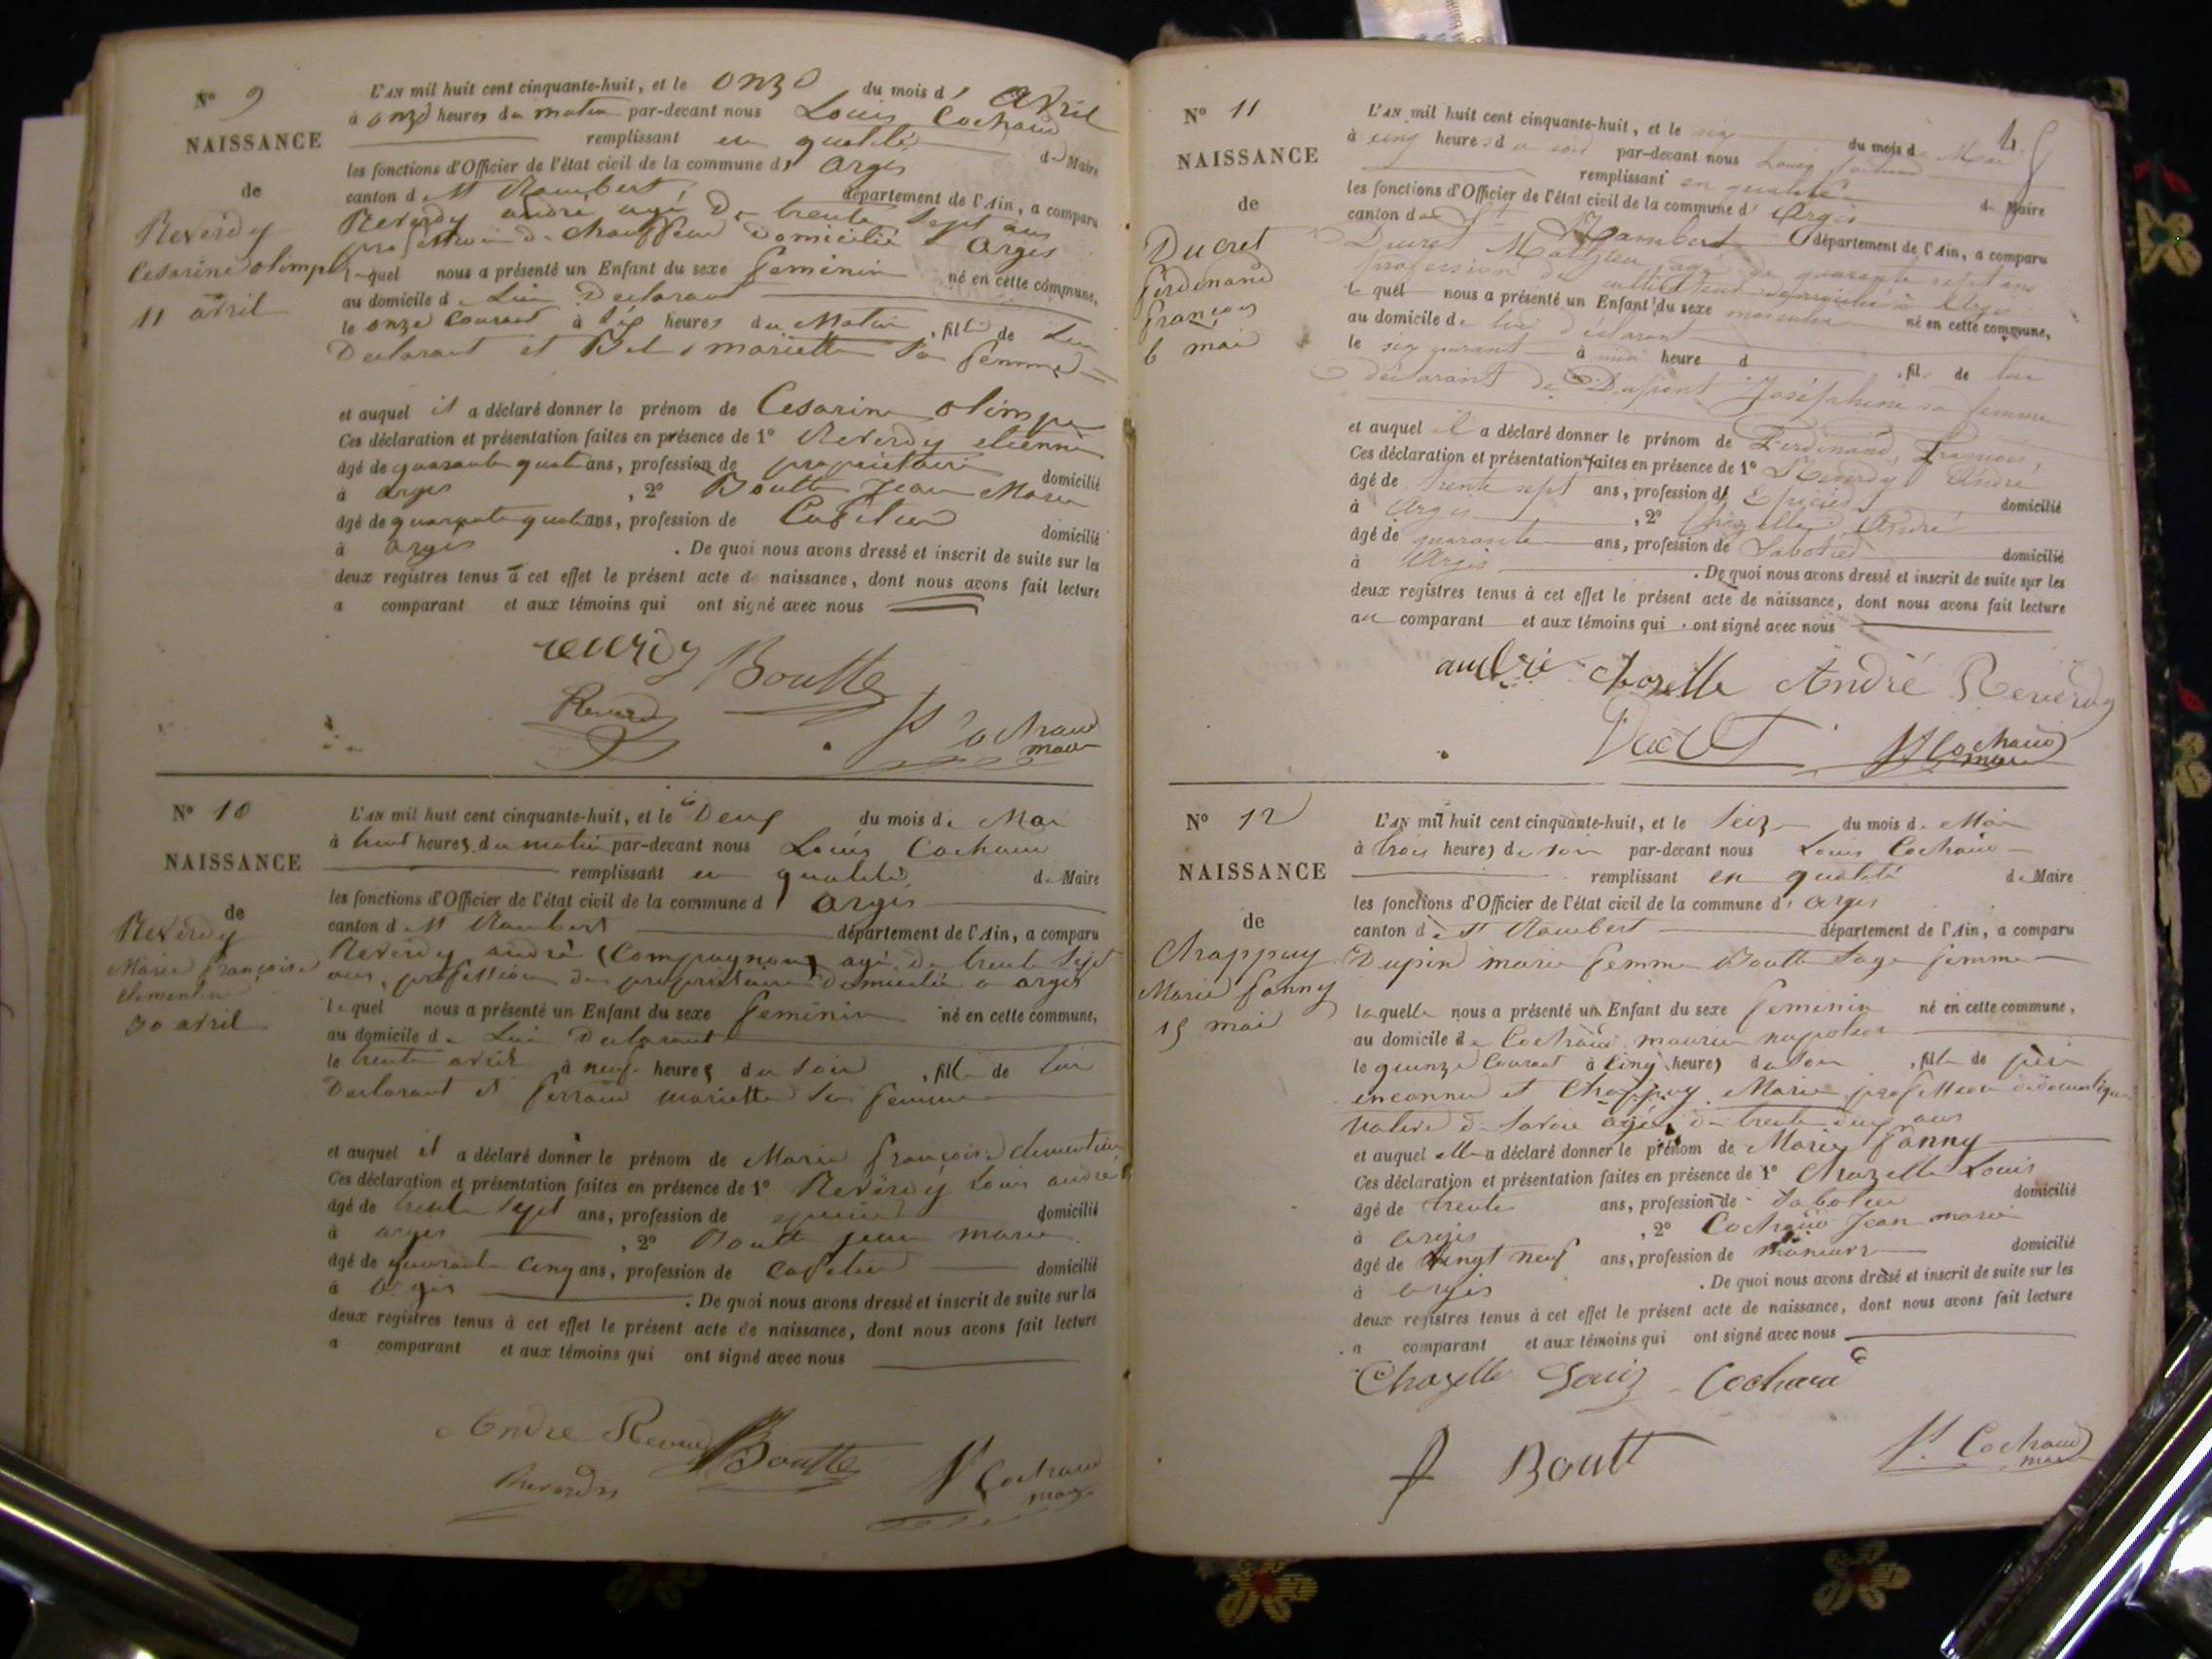 N° 9
NAISSANCE
de
Reverdy
Cesarine olimpe
11 avril
L'AN mil huit cent cinquante-huit, et le onze du mois d' avril
à onze heures du matin par-devant nous Louis Cochaud
remplissant en qualité de Maire
les fonctions d'Officier de l'état civil de la commune d' Argis
canton d St Rambert département de l'Ain, a comparu
Reverdy andré agé De trente sept ans
profession de chauffeur Domicilié a Argis
lequel nous a présenté un Enfant du sexe feminin né en cette commune,
au domicile d Lui Declarant
le onze Courant à heures du Matin , fille de Lui
Declarant et mariette Sa femme
et auquel il a déclaré donner le prénom de Cesarine olimpe
Ces déclaration et présentation faites en présence de 1° Reverdy etienne
âgé de quarante quatre ans, profession de propriétaire domicilié
à Argis , 2° Boutte Jean Marie
âgé de quarante quatre ans, profession de Cafetier domicilié
à argis . De quoi nous avons dressé et inscrit de suite sur les
deux registres tenus à cet effet le présent acte de naissance, dont nous avons fait lecture
a comparant et aux témoins qui ont signé avec nous
reverdy Boutte
Reverdy
Cochaud
maire
N° 10
NAISSANCE
de
Reverdy
Marie françoise
clementine
30 avril
L'AN mil huit cent cinquante-huit, et le Deux du mois de Mai
à huit heures du matin par-devant nous Louis Cochaud
remplissant en qualité de Maire
les fonctions d'Officier de l'état civil de la commune d argis
canton d St Rambert département de l'Ain, a comparu
Reverdy andré (Compagnon) agé de trente Sept
ans, profession de propriétaire Domicilié a argis
lequel nous a présenté un Enfant du sexe feminin né en cette commune,
au domicile de Lui Declarant
le trente avril à neuf heures du Soir , fille de lui
Declarant et ferrand mariette Sa femme
et auquel il a déclaré donner le prénom de Marie françoise clementine
Ces déclaration et présentation faites en présence de 1° Reverdy Louis andré
âgé de trente Sept ans, profession de epicier domicilié
à argis , 2° Boutte jean marie
âgé de quarante Cinq ans, profession de Cafetier domicilié
à argis . De quoi nous avons dressé et inscrit de suite sur les
deux registres tenus à cet effet le présent acte de naissance, dont nous avons fait lecture
a comparant et aux témoins qui ont signé avec nous
André Reverdy Boutte
Reverdy
Cochaud
maire
N° 11
NAISSANCE
de
Ducret
ferdinand
françois
6 mai
L'AN mil huit cent cinquante-huit, et le six du mois de Mai
à cinq heures du soir par-devant nous Louis Cochaud
remplissant en qualité de Maire
les fonctions d'Officier de l'état civil de la commune d' Argis
canton de St Rambert département de l'Ain, a comparu
Ducret Mathieu agé de quarante sept ans
profession de cultivateur domicilié à Argis
lequel nous a présenté un Enfant du sexe masculin né en cette commune,
au domicile de lui déclarant
le six courant à midi heure d , fil de lui
déclarant de Dupont Joséphine sa femme
et auquel il a déclaré donner le prénom de Ferdinand, François,
Ces déclaration et présentation faites en présence de 1° Reverdy André
âgé de trente sept ans, profession d' Epicier domicilié
à Argis , 2° Chazelle André
âgé de quarante ans, profession de Sabotier domicilié
à Argis . De quoi nous avons dressé et inscrit de suite sur les
deux registres tenus à cet effet le présent acte de naissance, dont nous avons fait lecture
au comparant et aux témoins qui ont signé avec nous
andré chazelle André Reverdy
Ducret Cochaud
maire
N° 12
NAISSANCE
de
Chappuy
Marie fanny
15 mai
L'AN mil huit cent cinquante-huit, et le Seize du mois de Mai
à trois heures du soir par-devant nous Louis Cochaud
remplissant en qualité de Maire
les fonctions d'Officier de l'état civil de la commune d' argis
canton d St Rambert département de l'Ain, a comparu
Dupin marie femme Boutte Sage femme
laquelle nous a présenté un Enfant du sexe feminin né en cette commune,
au domicile de Cochaud maurice napoleon
le quinze Courant à Cinq heures du Soir , fille de père
inconnu et Chappuy Marie profession de domestique
native de Savoie agée de trente deux ans
et auquel elle a déclaré donner le prénom de Marie fanny
Ces déclaration et présentation faites en présence de 1° Chazelle Louis
âgé de trente ans, profession de Sabotier domicilié
à argis , 2° Cochaud Jean marie
âgé de vingt neuf ans, profession de domicilié
à argis . De quoi nous avons dressé et inscrit de suite sur les
deux registres tenus à cet effet le présent acte de naissance, dont nous avons fait lecture
a comparant et aux témoins qui ont signé avec nous
Chazelle Louis Cochaud
f Boutt
Cochaud
maire